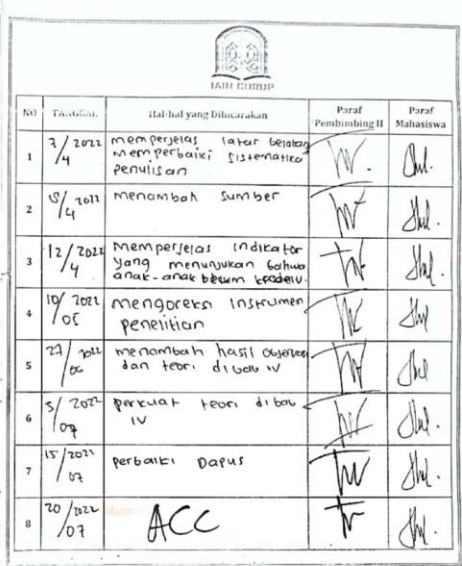 IAIN CURUP
NO TANGGAL Hal-hal yang Dibicarakan Paraf Pembimbing II Paraf Mahasiswa
1 7/4 2022 memperjelas latar belakang
memperbaiki sistematika
penulisan
2 /4 menambah sumber
3 12/4 2022 memperjelas indikator
yang menunjukan bahwa
anak-anak belum
4 10/05 mengoreksi instrumen
penelitian
5 27/06 menambah hasil observasi
dan teori dibab IV
6 5/07 2022 perkuat teori dibab
IV
7 15/07 perbaiki Dapus
8 20/07 2022 ACC